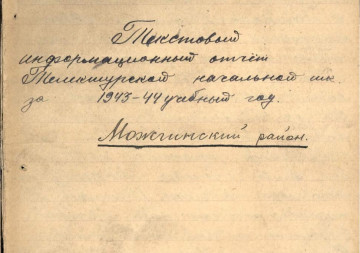 Текстовый
информационный отчёт
Телекшурской начальной шк.
за 1943-44 учебный год.
Можгинский район.